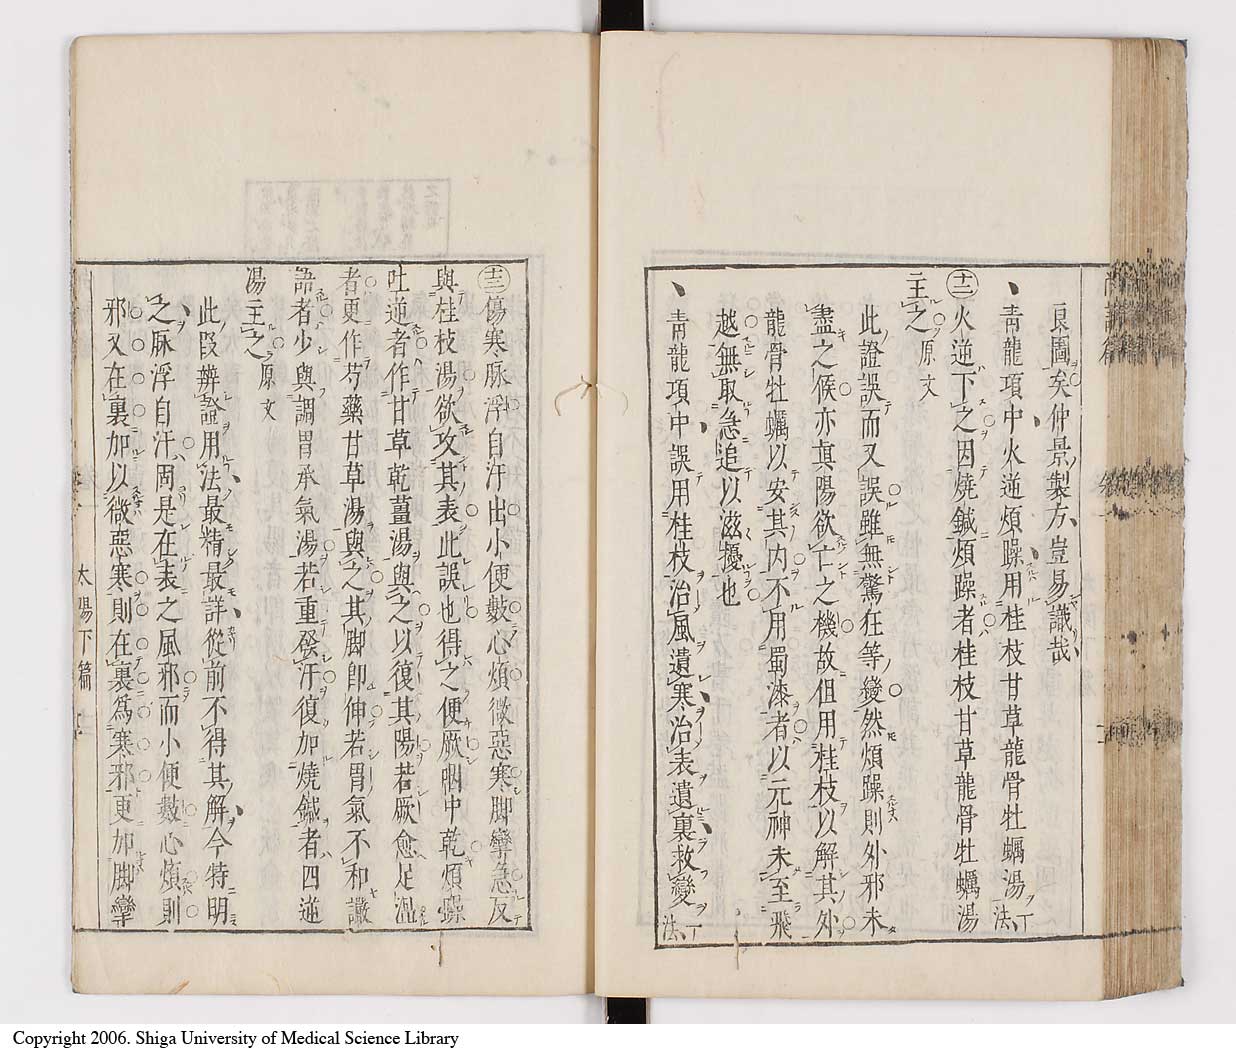 良圖矣仲景製方豈易識哉
青龍項中火逆煩躁用桂枝甘草龍骨牡蠣湯丁法
十二火逆下之因燒鍼煩躁者桂枝甘草龍骨牡蠣湯
主之原文
此證誤而又誤雖無驚狂等變然煩躁則外邪未
盡之候亦真陽欲亡之機故但用桂枝以解其外
龍骨牡蠣以安其内不用蜀漆者以元神未至飛
越無取急追以滋擾也
青龍項中誤用桂枝治風遺寒治表遺裏救變丁法
十三傷寒脉浮自汗出小便數心煩微惡寒脚攣急反
與桂枝湯欲攻其表此誤也得之便厥咽中乾煩躁
吐逆者作甘草乾薑湯與之以復其陽若厥愈足温
者更作芍藥甘草湯與之其脚即伸若胃氣不和讝
語者少與調胃承氣湯若重發汗復加燒鍼者四逆
湯主之原文
此段辨證用法最精最詳從前不得其解今特明
之脉浮自汗固是在表之風邪而小便數心煩則
邪又在裏加以微惡寒則在裏爲寒邪更加脚攣
太陽下篇
Copyright 2006. Shiga University of Medical Science Library